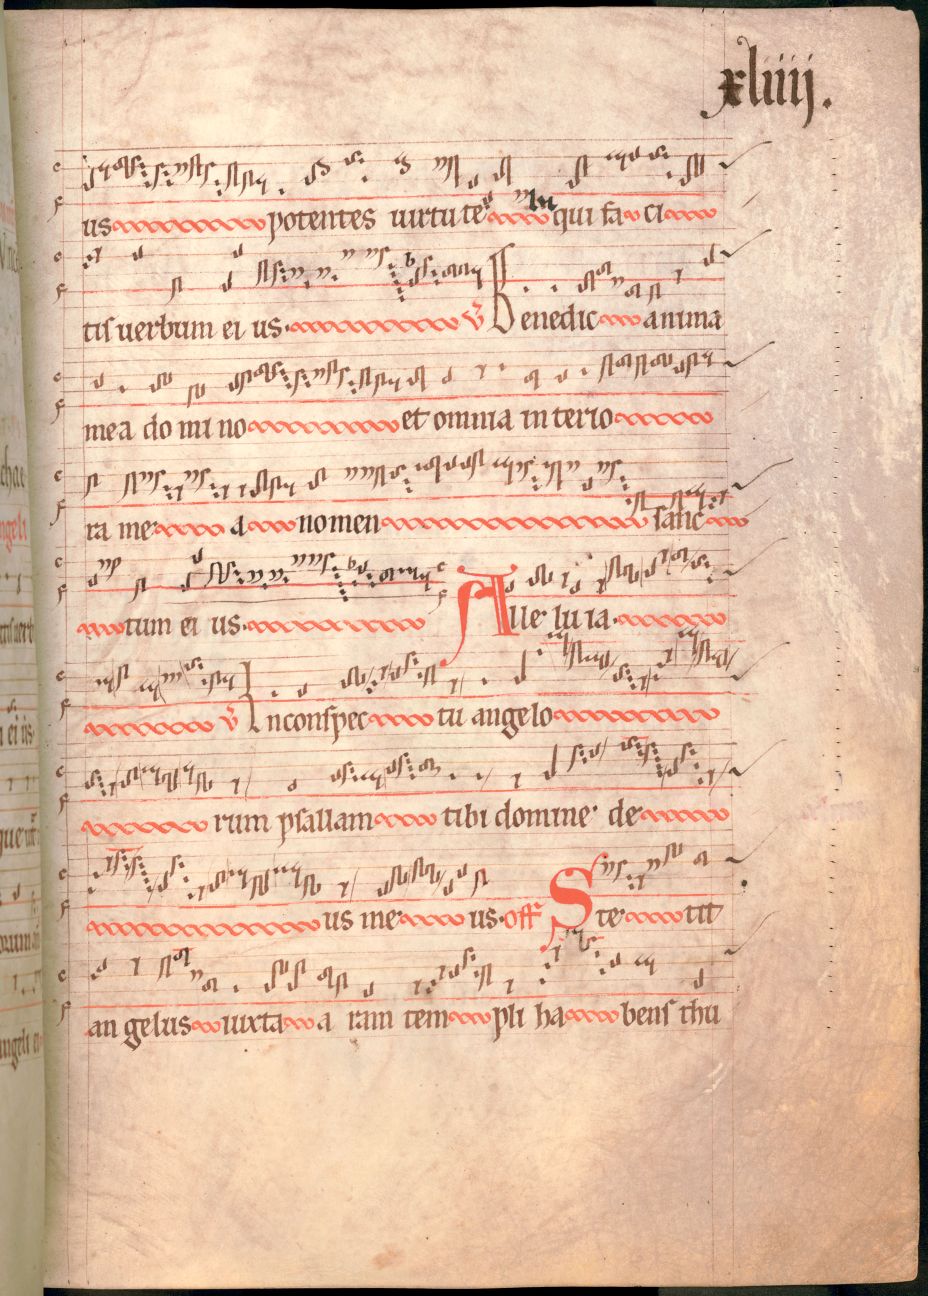 xliiij.
us potentes uirtute qui fa ci
tis uerbum ei us. v Benedic anima
mea do mi no et omnia in terio
ra me a nomen sanc
tum ei us. Alle lu ia.
v In conspec tu angelo
rum psallam tibi domine de
us me us. off Ste tit
an gelus iuxta a ram tem pli ha bens thu